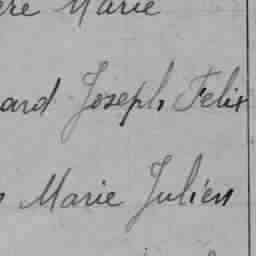 ere Marie
ard Joseph Felix
Marie Julien